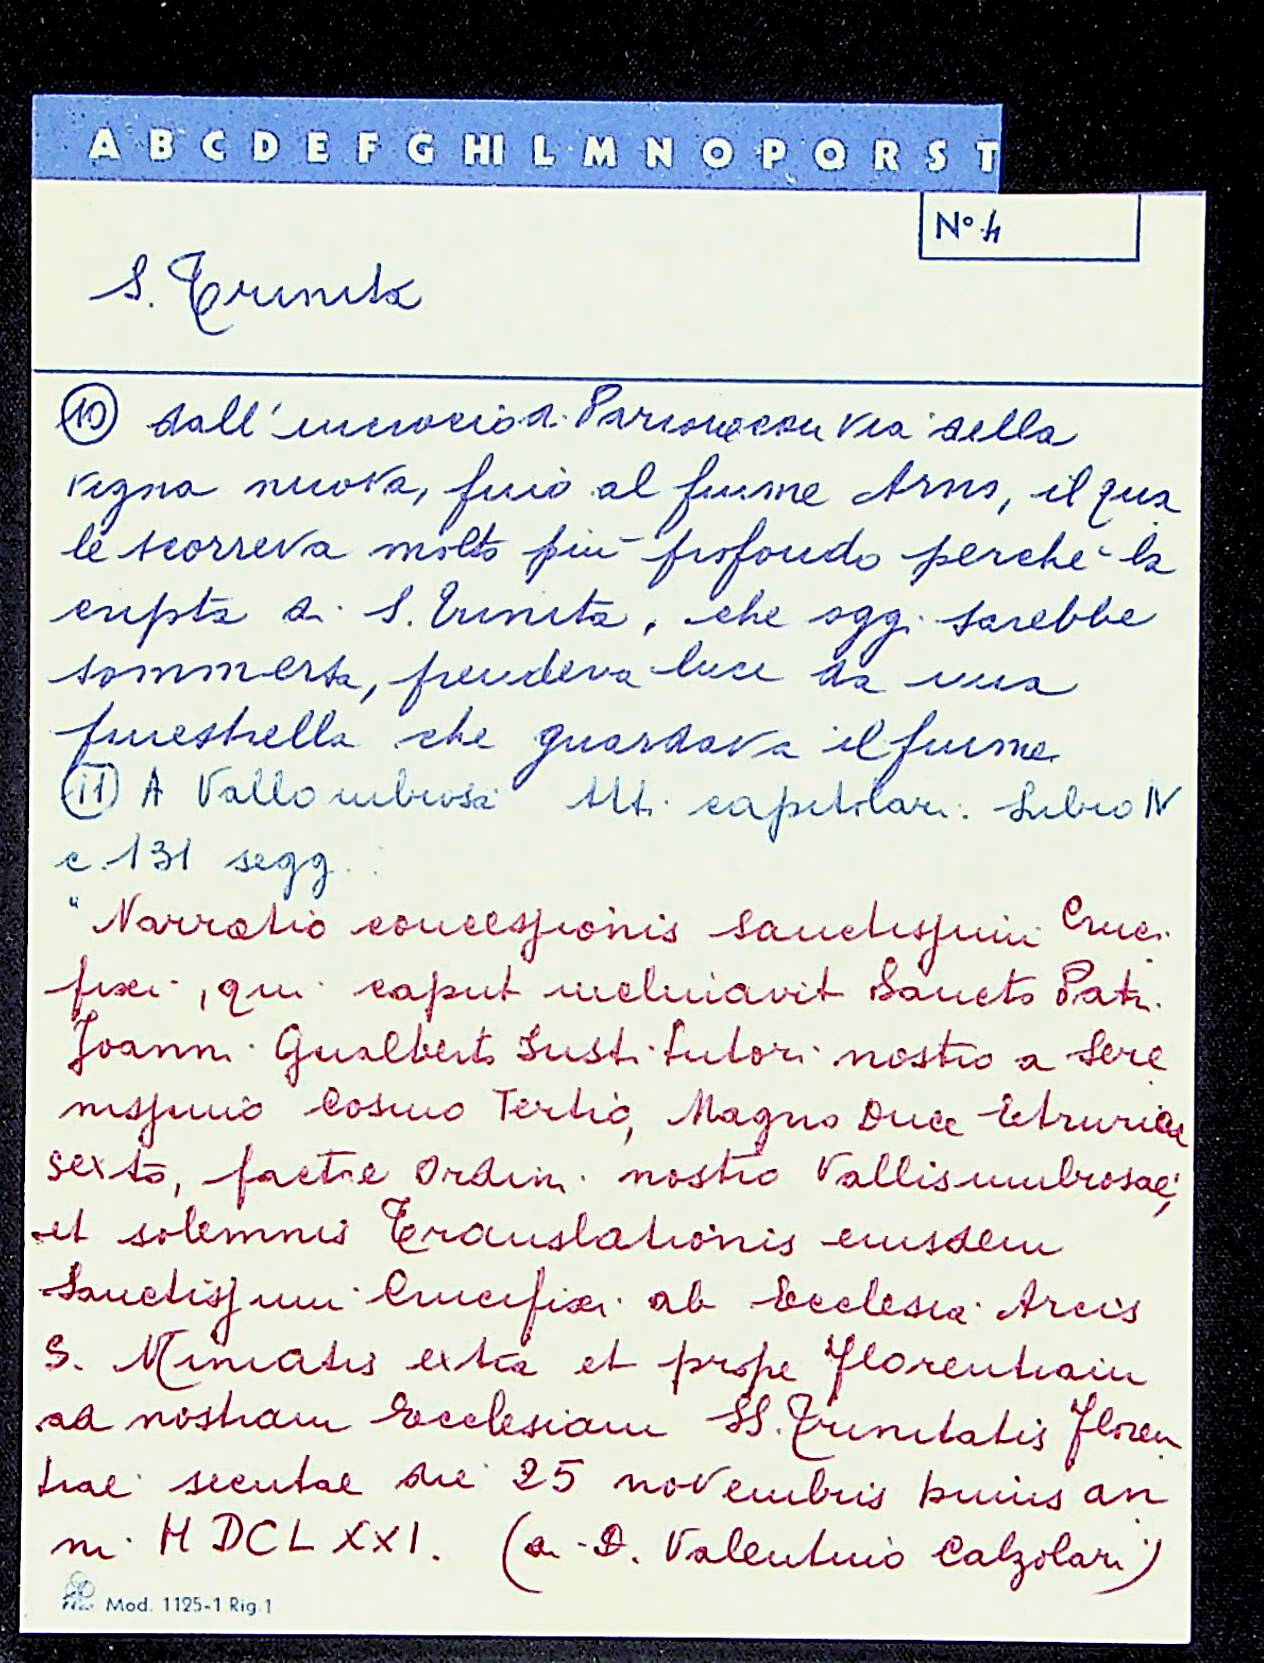 A B C D E F G HI L M N O P Q R S T
N° 4
S. Trinita
10 dall'incrocio di Parione con via della
vigna nuova, fino al fiume Arno, il qua
le scorreva molto più profondo perchè la
cripta di S. Trinita, che oggi sarebbe
sommersa, prendeva luce da una
finestrella che guardava il fiume.
11 A Vallombrosa Atti capitolari. Libro IV
c. 131 segg.
"Narratio concessionis sanctissimi Cruci
fixi, qui caput inclinavit Sancto Patri
Joanni Gualberto Institutori nostro a Sere
nissimo Cosmo Tertio, Magno Duce Etruriae
sexto, factae Ordini nostro Vallisumbrosae,
et solemnis Translationis eiusdem
Sanctissimi Crucifixi ab Ecclesia Arcis
S. Miniatis extra et prope Florentiam
ad nostram Ecclesiam SS. Trinitatis Floren
tiae secutae die 25 novembris huius an
ni MDCLXXI. (di D. Valentino Calzolari)
Mod. 1125-1 Rig. 1